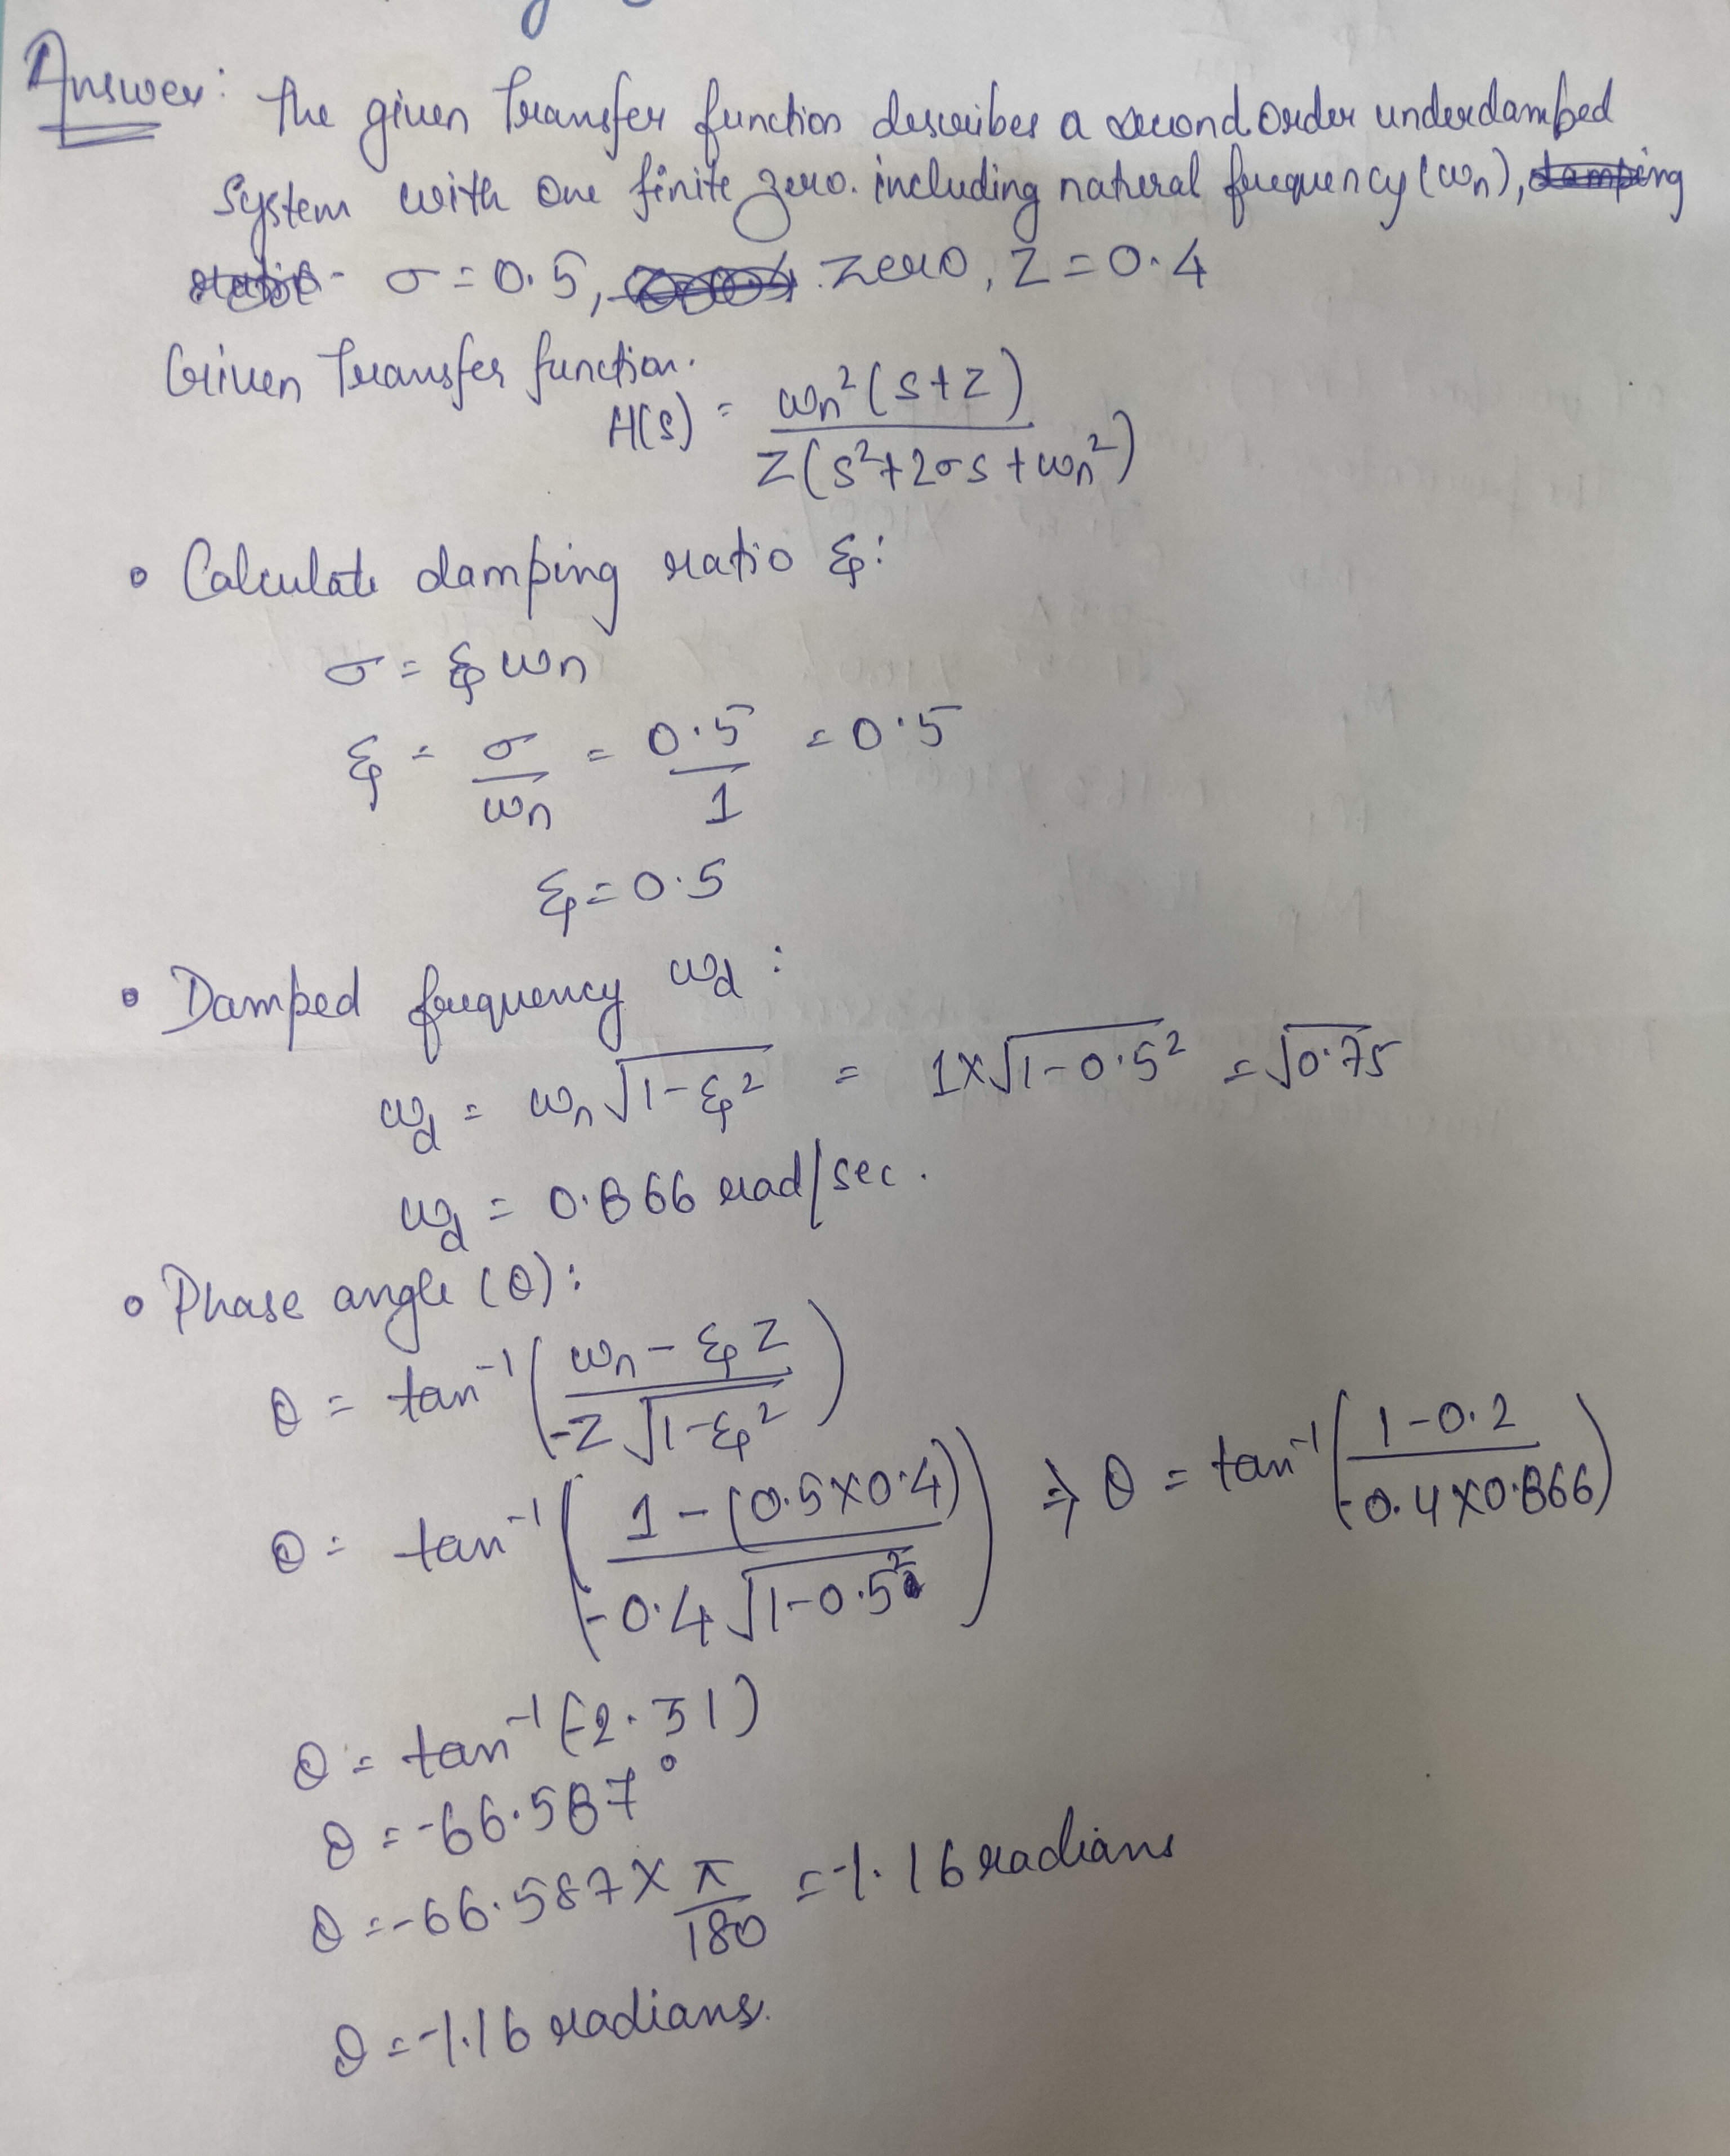 Answer: The given Transfer function describes a second order underdamped
System with one finite zero. including natural frequency (ωn), damping
ratio - σ = 0.5, zero, Z = 0.4
Given Transfer function.
H(s) = ωn²(s+z) / z(s²+2σs+ωn²)
• Calculate damping ratio ξ:
σ = ξ ωn
ξ = σ/ωn = 0.5/1 = 0.5
ξ = 0.5
• Damped frequency ωd :
ωd = ωn √(1-ξ²) = 1×√(1-0.5²) = √0.75
ωd = 0.866 rad/sec.
• Phase angle (θ):
θ = tan⁻¹((ωn - ξz) / (-z√(1-ξ²)))
θ = tan⁻¹((1-(0.5×0.4)) / (-0.4√(1-0.5²))) ⇒ θ = tan⁻¹((1-0.2) / (-0.4×0.866))
θ = tan⁻¹(-2.31)
θ = -66.587°
θ = -66.587 × π/180 = -1.16 radians
θ = -1.16 radians.